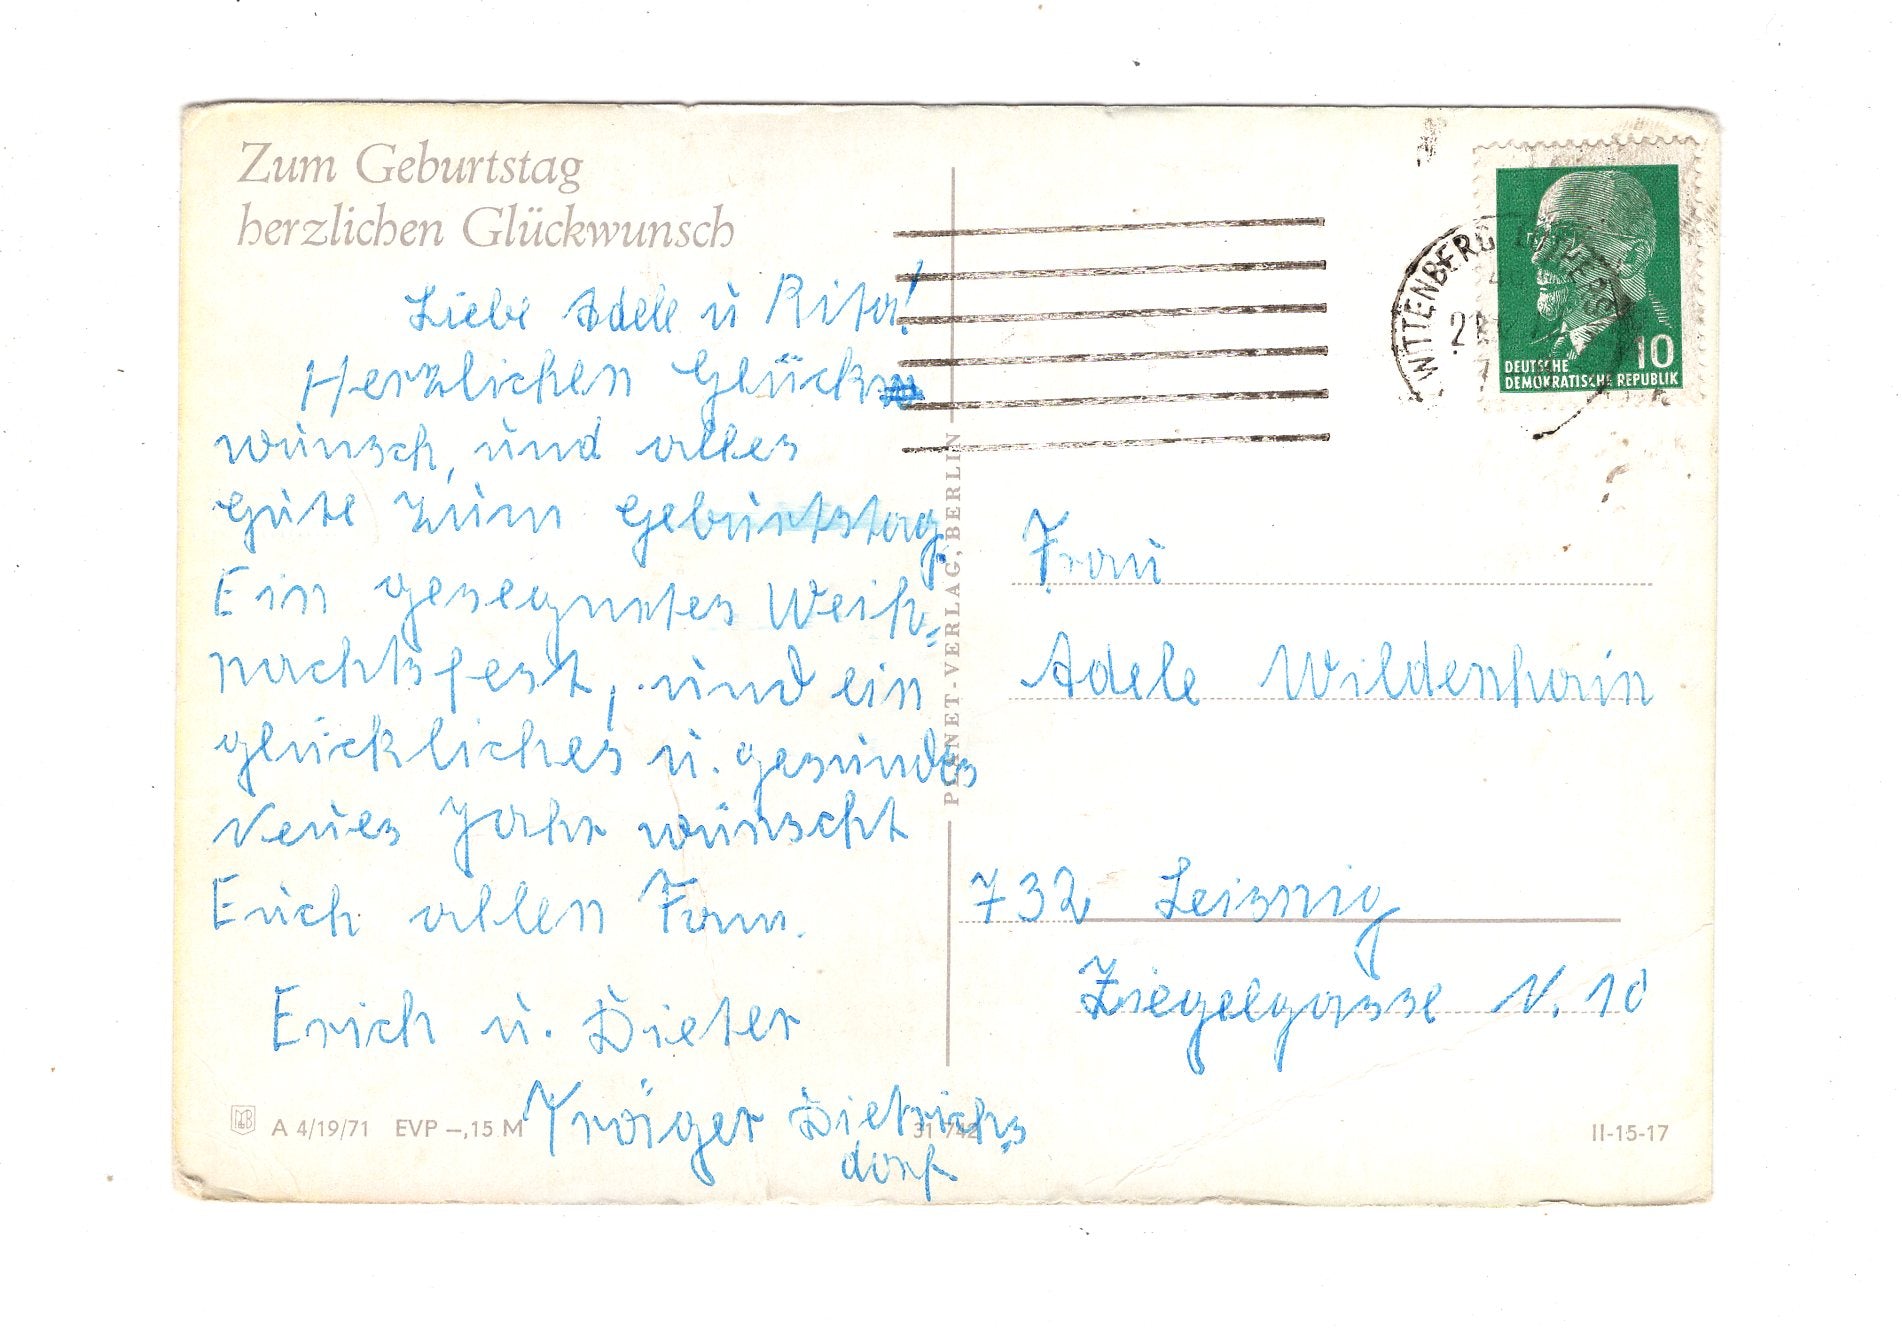 Zum Geburtstag
herzlichen Glückwunsch
Liebe Adele u Rita!
Herzlichen Glück
wunsch, und alles
Gute zum Geburtstag.
Ein gesegnetes Weih=
nachtsfest, und ein
glückliches u. gesundes
Neues Jahr wünscht
Euch allen Fam.
Erich u. Dieter
Dietrichs
dorf
A 4/19/71 EVP –,15 M
31 742
II-15-17
PLANET-VERLAG, BERLIN
WITTENBERG
DEUTSCHE
DEMOKRATISCHE REPUBLIK
10
Frau
Adele Wildenhain
732 Leisnig
Ziegelgasse N. 10